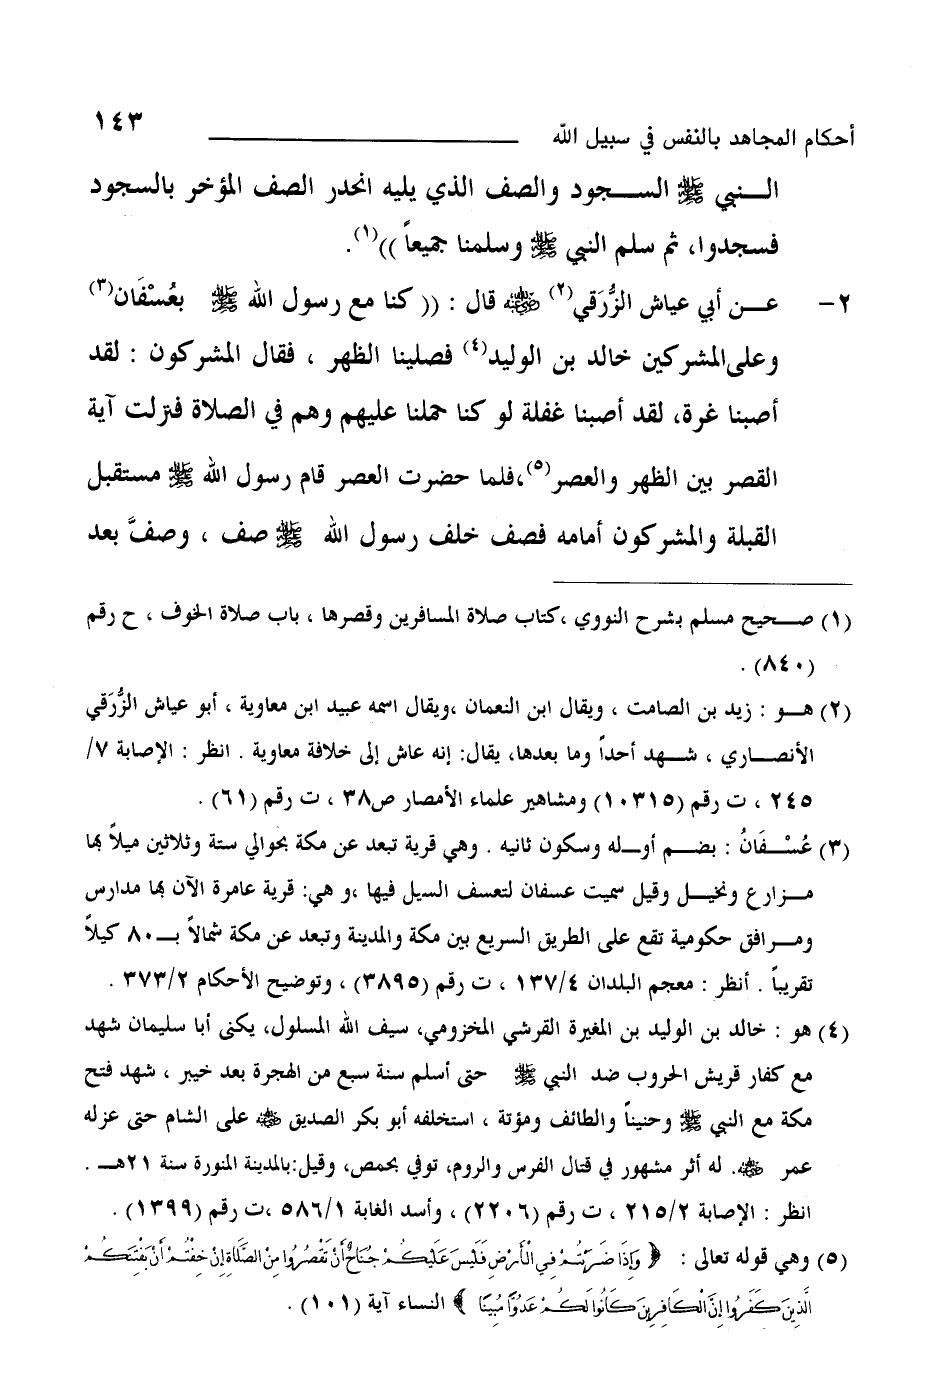 أحكام المجاهد بالنفس في سبيل الله ١٤٣
النبي ﷺ السجود والصف الذي يليه انحدر الصف المؤخر بالسجود
فسجدوا، ثم سلم النبي ﷺ وسلمنا جميعاً ))(١).
٢- عن أبي عياش الزُّرَقي(٢) ﵁ قال : (( كنا مع رسول الله ﷺ بعُسْفَان(٣)
وعلى المشركين خالد بن الوليد(٤) فصلينا الظهر ، فقال المشركون : لقد
أصبنا غرة، لقد أصبنا غفلة لو كنا حملنا عليهم وهم في الصلاة فنزلت آية
القصر بين الظهر والعصر(٥)،فلما حضرت العصر قام رسول الله ﷺ مستقبل
القبلة والمشركون أمامه فصف خلف رسول الله ﷺ صف ، وصفَّ بعد
(١) صحيح مسلم بشرح النووي ،كتاب صلاة المسافرين وقصرها ، باب صلاة الخوف ، ح رقم
(٨٤٠) .
(٢) هو : زيد بن الصامت ، ويقال ابن النعمان ،ويقال اسمه عبيد ابن معاوية ، أبو عياش الزُّرَقي
الأنصاري ، شهد أحداً وما بعدها، يقال: إنه عاش إلى خلافة معاوية . انظر : الإصابة ٧/
٢٤٥ ، ت رقم (١٠٣١٥) ومشاهير علماء الأمصار ص٣٨ ، ت رقم (٦١) .
(٣) عُسْفَانُ : بضم أوله وسكون ثانيه . وهي قرية تبعد عن مكة بحوالي ستة وثلاثين ميلاً بها
مزارع ونخيل وقيل سميت عسفان لتعسف السيل فيها ،و هي: قرية عامرة الآن بها مدارس
ومرافق حكومية تقع على الطريق السريع بين مكة والمدينة وتبعد عن مكة شمالاً بـ٨٠ كيلاً
تقريباً . أنظر : معجم البلدان ١٣٧/٤ ، ت رقم (٣٨٩٥) ، وتوضيح الأحكام ٣٧٣/٢ .
(٤) هو : خالد بن الوليد بن المغيرة القرشي المخزومي، سيف الله المسلول، يكنى أبا سليمان شهد
مع كفار قريش الحروب ضد النبي ﷺ حتى أسلم سنة سبع من الهجرة بعد خيبر ، شهد فتح
مكة مع النبي ﷺ وحنيناً والطائف ومؤتة ، استخلفه أبو بكر الصديق ﵁ على الشام حتى عزله
عمر ﵁. له أثر مشهور في قتال الفرس والروم، توفي بحمص، وقيل:بالمدينة المنورة سنة ٢١هـ .
انظر : الإصابة ٢١٥/٢ ، ت رقم (٢٢٠٦) ، وأسد الغابة ٥٨٦/١ ،ت رقم (١٣٩٩) .
(٥) وهي قوله تعالى : ﴿ وَإِذَا ضَرَبْتُمْ فِي الْأَرْضِ فَلَيْسَ عَلَيْكُمْ جُنَاحٌ أَنْ تَقْصُرُوا مِنَ الصَّلَاةِ إِنْ خِفْتُمْ أَنْ يَفْتِنَكُمُ
الَّذِينَ كَفَرُوا إِنَّ الْكَافِرِينَ كَانُوا لَكُمْ عَدُوًّا مُبِينًا ﴾ النساء آية (١٠١) .